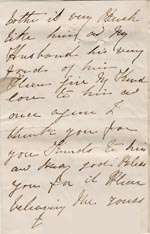 both it very Much
like him and My
Husband his very
fonds of him
Please give My kind
love to him and
once again I
thank you for
you kinds to him
and May god Bless
you for it Please
beleaving Me yours